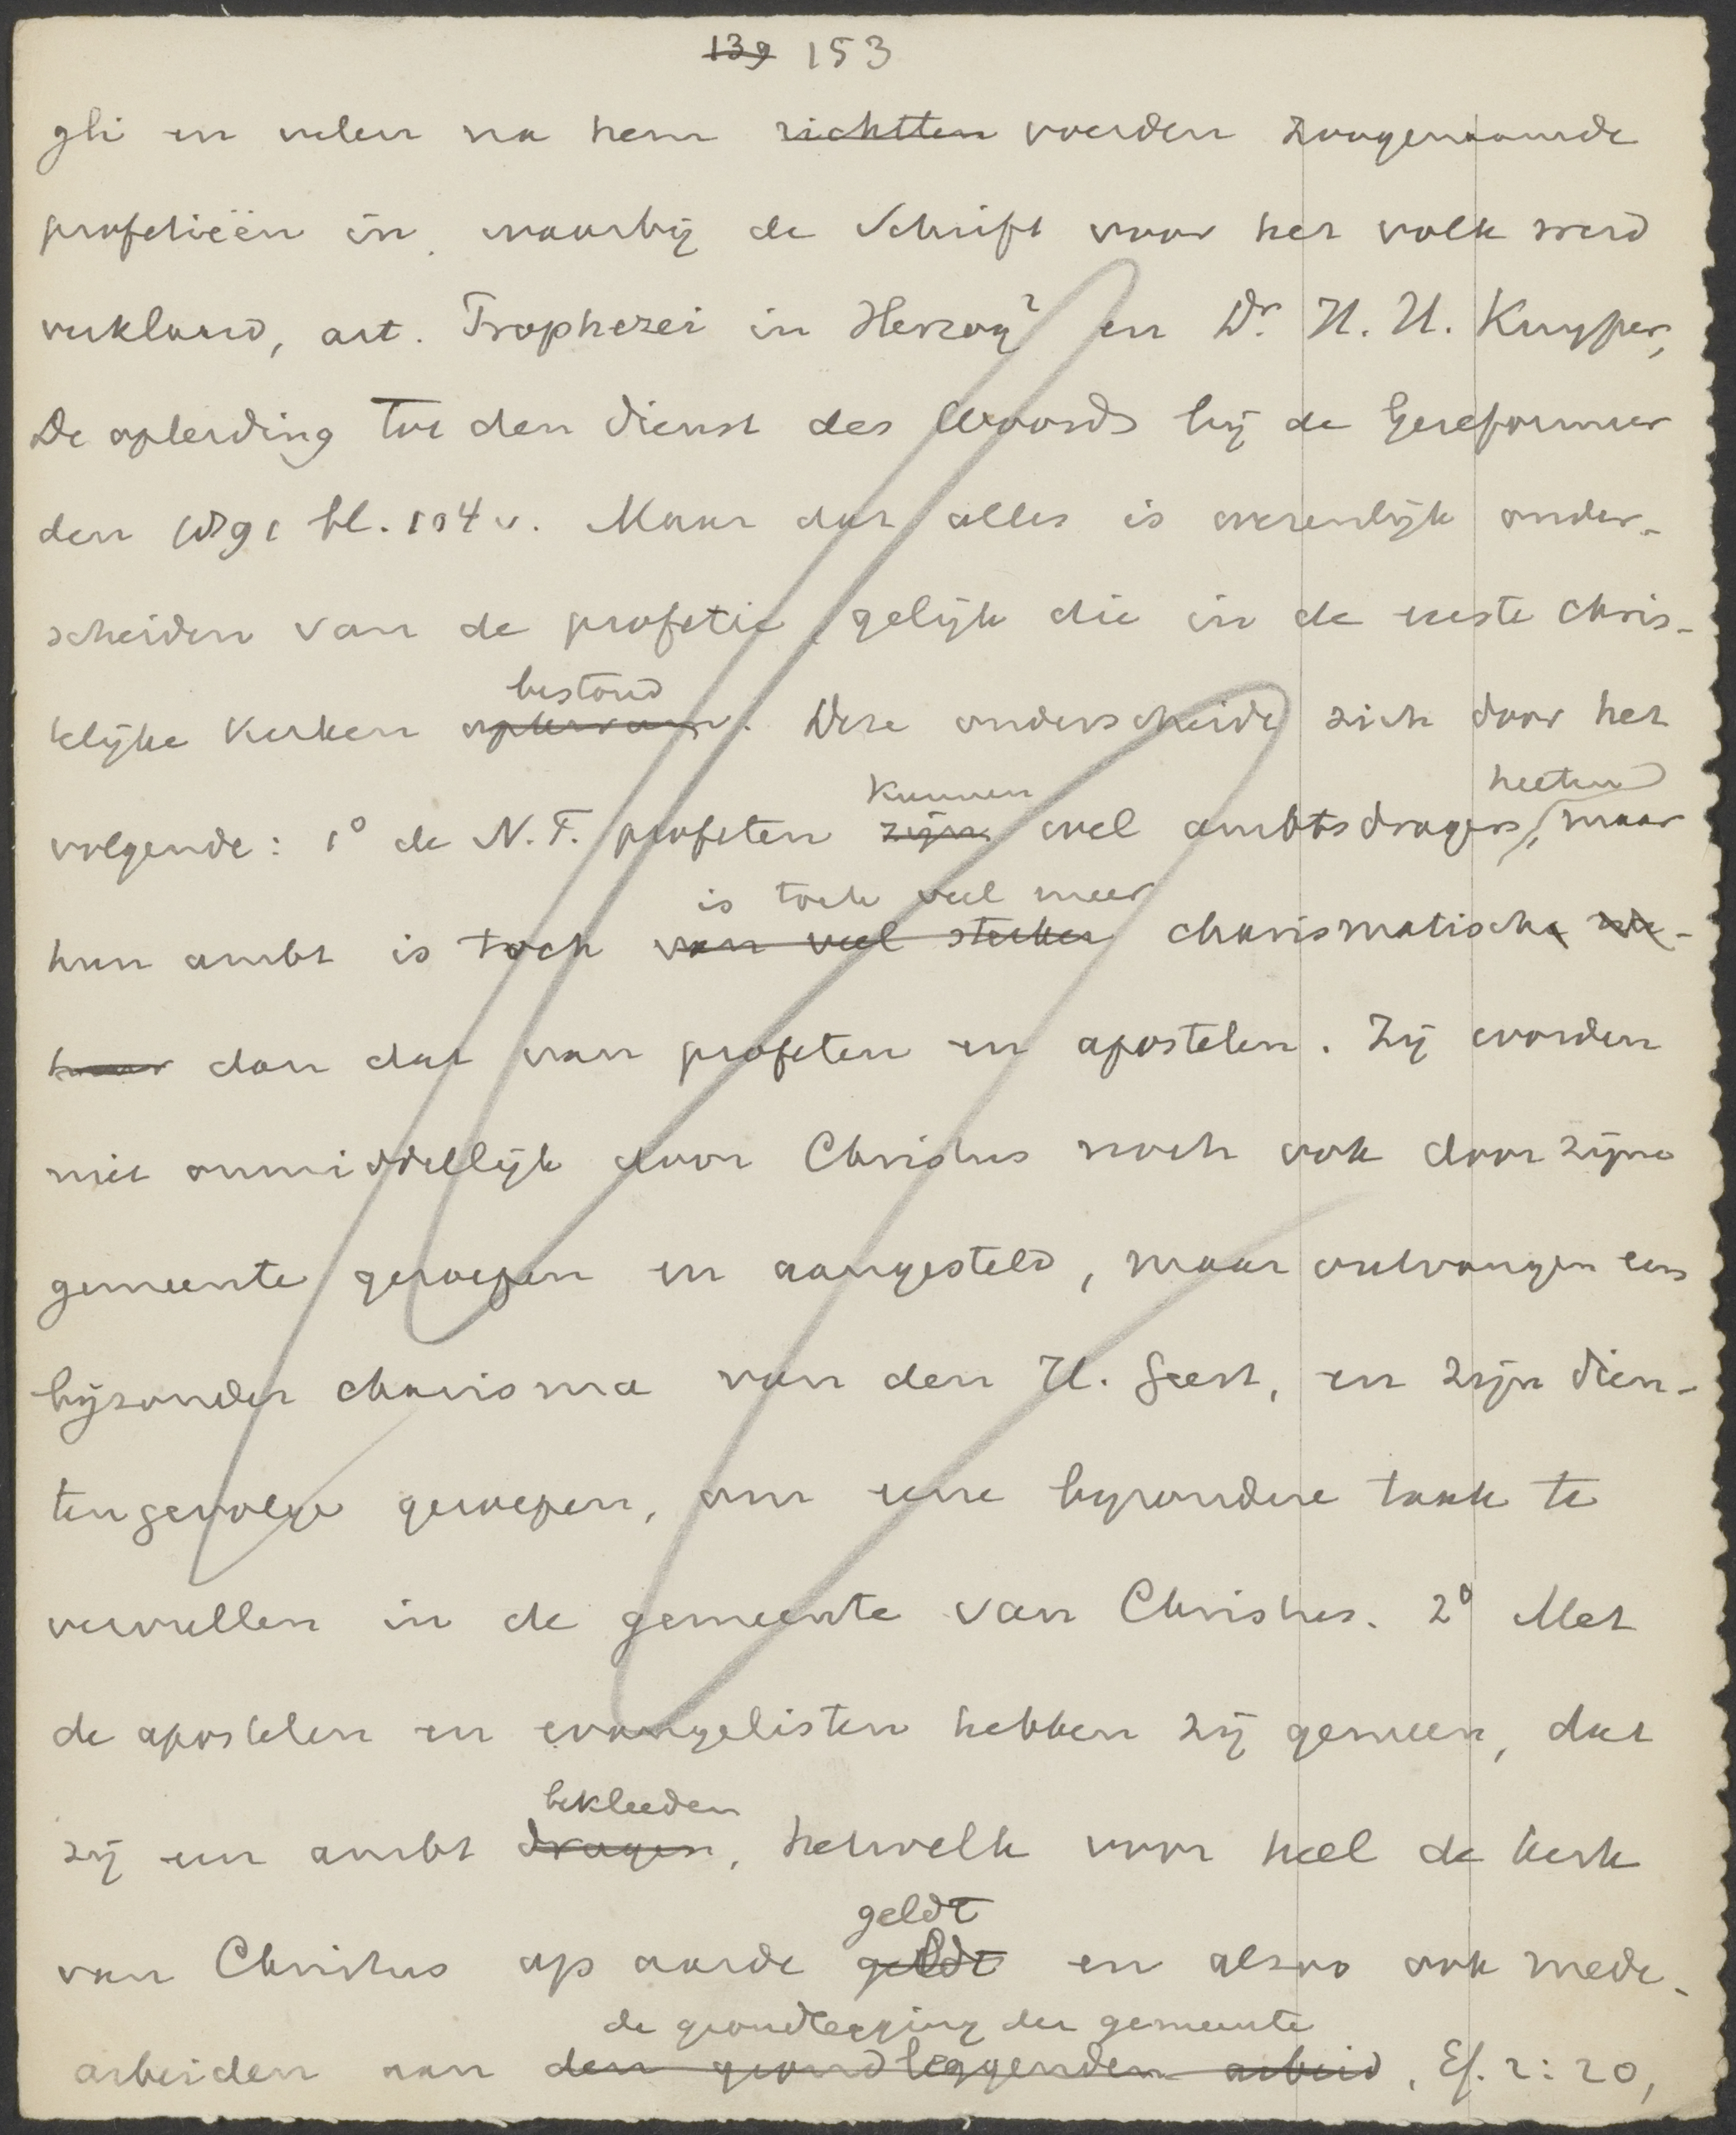 139 153
gli en velen na hem richtten voerden zoogenaamde
profetieën in, waarbij de Schrift voor het volk werd
verklaard, art. Prophezei in Herzog² en Dr. H. H. Kuyper,
De opleiding tot den dienst des Woords bij de Gereformeer
den 1891 bl. 104 v. Maar dat alles is wezenlijk onder-
scheiden van de profetie, gelijk die in de eerste Chris-
bestond
telijke Kerken optrad. Deze onderscheidt zich door het
kunnen heeten
volgende: 1° de N.T. profeten zijn wel ambtsdragers, maar
is toch veel meer
hun ambt is toch van veel sterker charismatische na-
tuur dan dat van profeten en apostelen. Zij worden
niet onmiddellijk door Christus noch ook door zijne
gemeente geroepen en aangesteld, maar ontvangen een
bijzonder charisma van den H. Geest, en zijn dien-
tengevolge geroepen, om eene bijzondere taak te
vervullen in de gemeente van Christus. 2° Met
de apostelen en evangelisten hebben zij gemeen, dat
bekleeden
zij een ambt dragen, hetwelk voor heel de kerk
geldt
van Christus op aarde geldt en alzoo ook mede-
de grondlegging der gemeente
arbeiden aan den grondleggenden arbeid, Ef. 2:20,